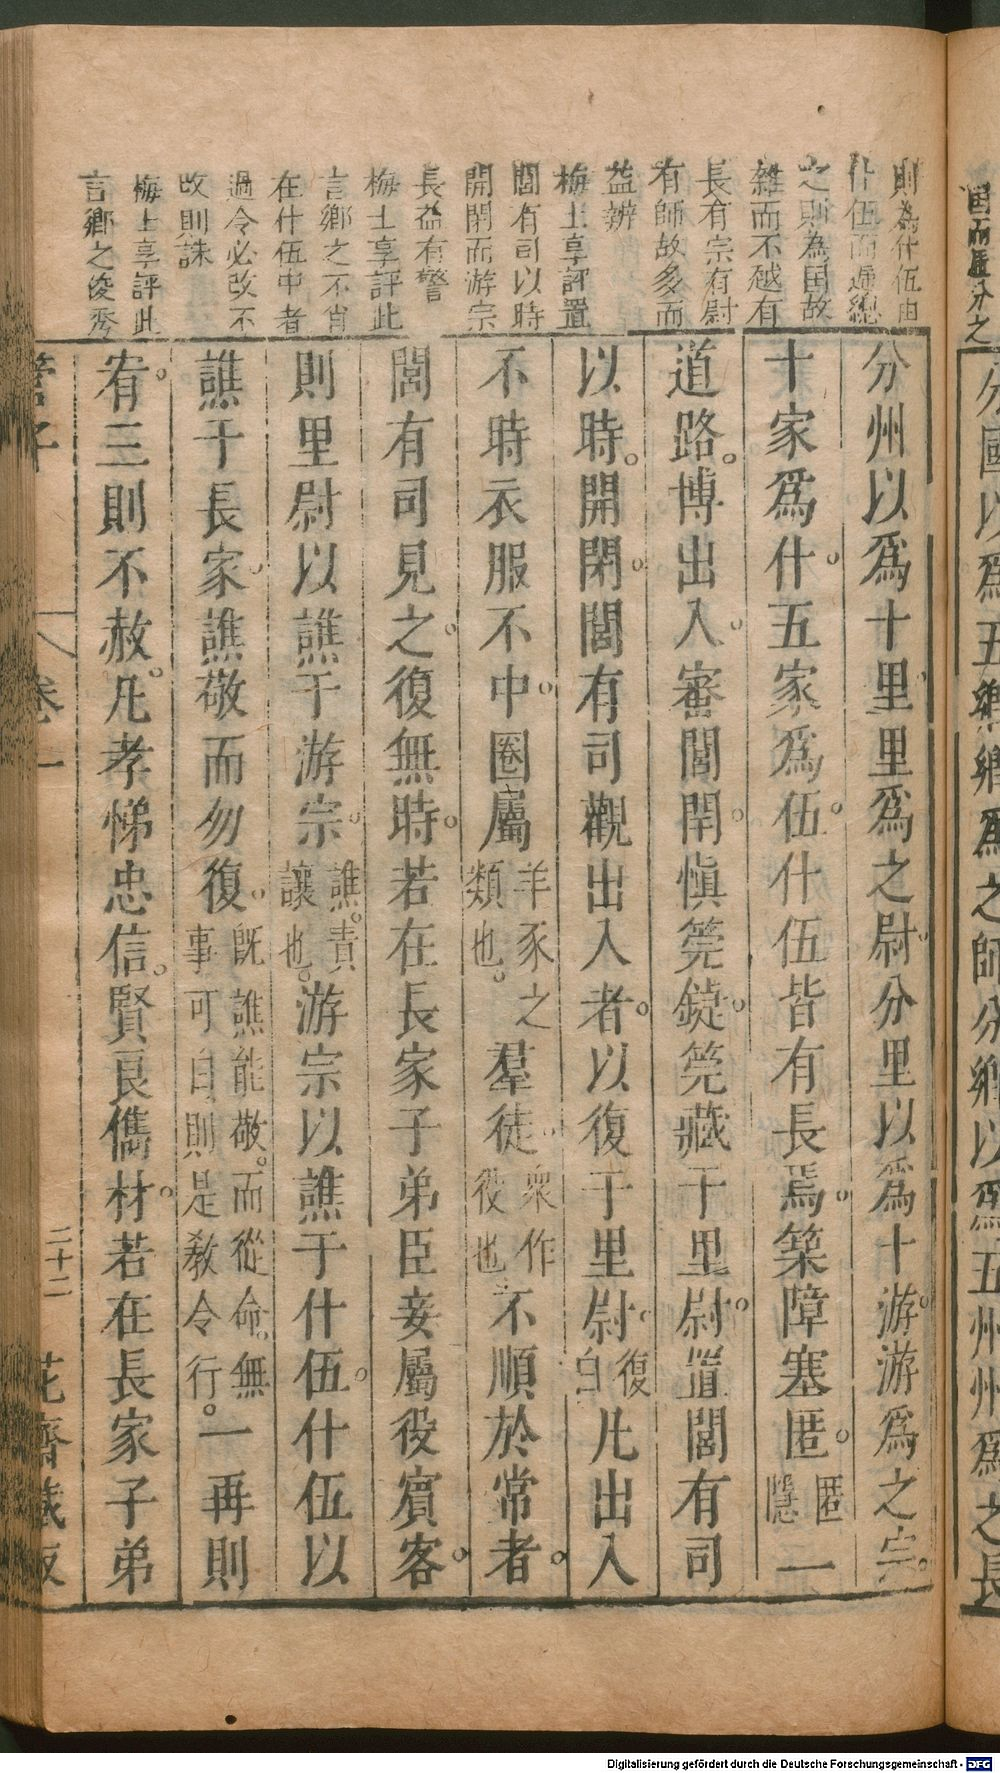 則為什伍由
什伍而遞總
之則為國故
雜而不越有
長有宗有尉
有師故多而
益辨
梅士享評置
閭有司以時
開閉而游宗
長益有警
梅士享評此
言鄉之不肖
在什伍中者
過令必改不
改則誅
梅士享評此
言鄉之俊秀
分國以爲五鄉鄉爲之師分鄉以爲五州州爲之長
分州以爲十里里爲之尉分里以爲十游游爲之宗。
十家爲什。五家爲伍。什伍皆有長焉。築障塞匿。匿隱一
道路。博出入。審閭閈。慎筦鍵。筦藏于里尉。置閭有司
以時。開閉。閭有司觀出入者。以復于里尉。復白凡出入
不時衣服不中。圈屬羊豕之類也。羣徒。衆作役也不順於常者。
閭有司見之。復無時。若在長家子弟臣妾屬役賓客。
則里尉以譙于游宗。譙。責讓也。游宗以譙于什伍。什伍以
譙于長家。譙敬而勿復。旣譙能敬。而從命。無事可白則是教令行。一再則
宥。三則不赦。凡孝悌忠信。賢良儁材。若在長家子弟
管子
卷一
二十二
花齋藏板
Digitalisierung gefördert durch die Deutsche Forschungsgemeinschaft - DFG